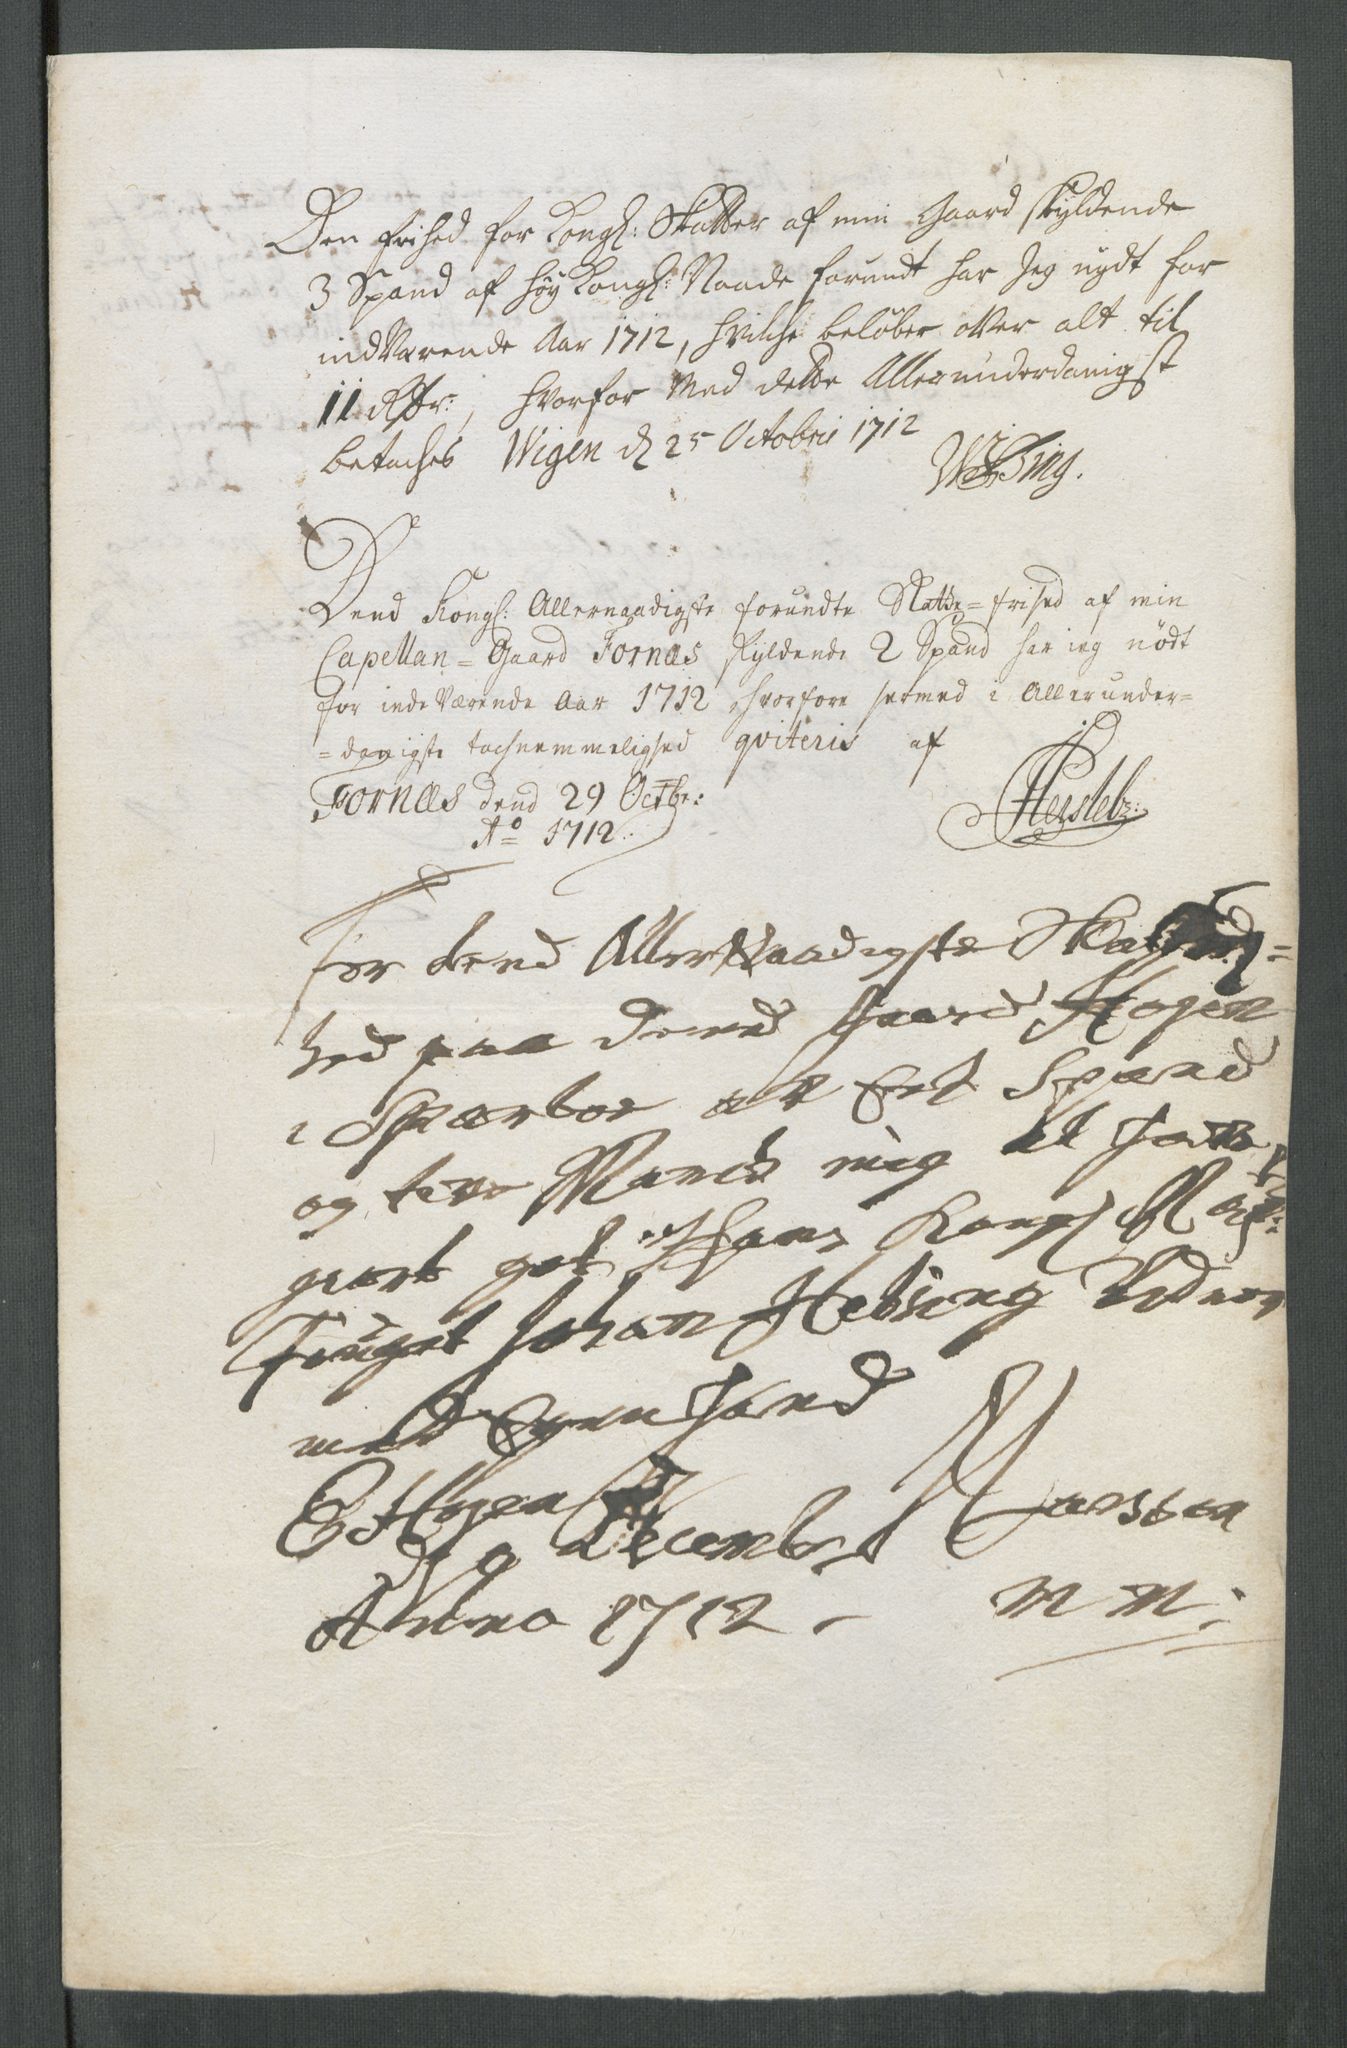 Den frihed for Kongl: Skatter af min Gaard skyldende
3 Spand af høy Kongl: Naade forundt har Jeg nydt for
indVærende Aar 1712, hvilche beløber over alt til
11 Rdr:, hvorfor Med dette Allerunderdanigst
betaches Wigen d 25 Octobris 1712
Dend Kongl: Allernaadigste forundte Skatte-frihed af min
Capellan-Gaard Fornæs skyldende 2 Spand har ieg nödt
for inde Værende Aar 1712 hvorfore hermed i Allerunder-
-danigste tachnemmelighed qviteris af
Fornæs dend 29 Octbr:
Ao 1712.
For dend AllerNaadigste
hed paa dend Gaard Hogen
i Sparboe at Eet Spand
og tvo March mig at
giort got af Hans Kongl May:
Fouget Johan
med Egen Haand
d 9 Decembr
Anno 1712 - M M: